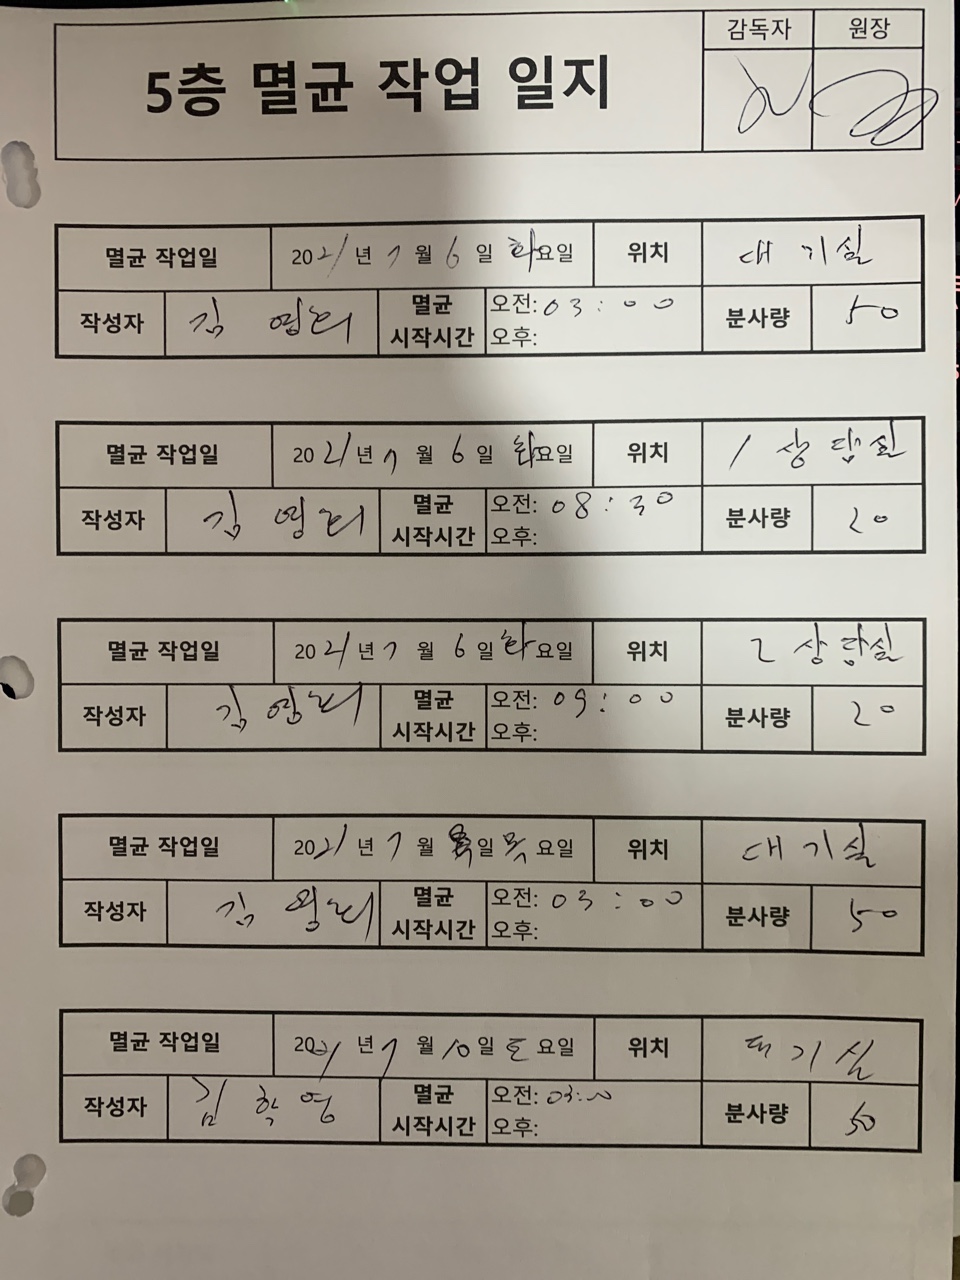 감독자 원장
5층 멸균 작업 일지
멸균 작업일 2021년 7월 6일 화요일 위치 대기실
작성자 김영희 멸균 시작시간 오전: 03:00 오후: 분사량 50
멸균 작업일 2021년 7월 6일 화요일 위치 1 상담실
작성자 김영희 멸균 시작시간 오전: 08:30 오후: 분사량 20
멸균 작업일 2021년 7월 6일 화요일 위치 2 상담실
작성자 김영희 멸균 시작시간 오전: 09:00 오후: 분사량 20
멸균 작업일 2021년 7월 일 목요일 위치 대기실
작성자 김영희 멸균 시작시간 오전: 03:00 오후: 분사량 50
멸균 작업일 2021년 7월 10일 토요일 위치 대기실
작성자 김학영 멸균 시작시간 오전: 03:00 오후: 분사량 50